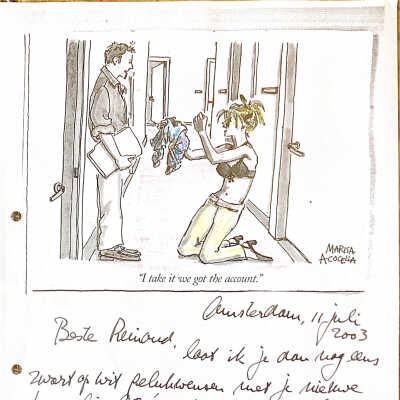 MARISA
ACOCELLA
"I take it we got the account."
Amsterdam, 11 juli
2003
Beste Reinoud,
laat ik je dan nog eens
zwart op wit gelukwensen met je nieuwe